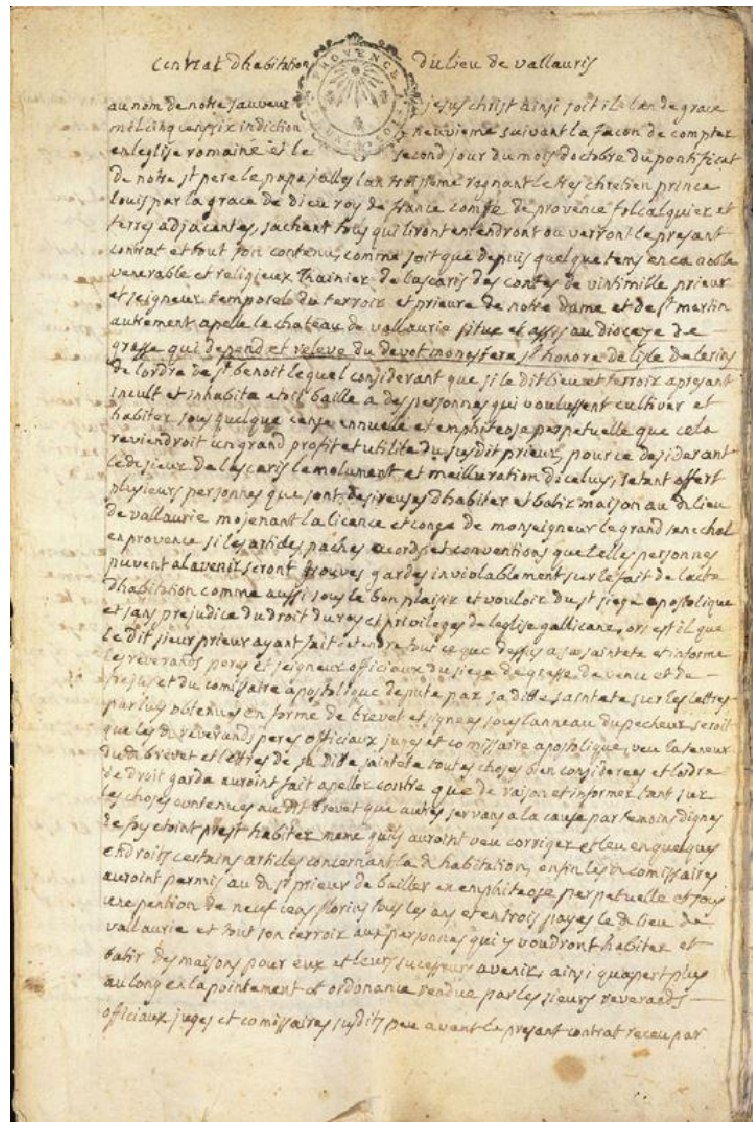 contrat dhabitation du lieu de vallauris
PROVENCE
au nom de notre sauveur jesus christ ainsi soit il lan de grace
mil cinq cens six indiction neuvieme suivant la facon de compter
en leglise romaine et le second jour du mois doctobre du pontificat
de notre st pere le pape julles lan troisieme regnant le tres chretien prince
louis par la grace de dieu roy de france comte de provence folcalquier et
terres adjacantes, sachent tous qui liront entendront ou verront le presant
contrat et tout son contenu, comme soit que depuis quelque tens en ca noble
venerable et religieux Rainier de lascaris des contes de vintimille prieur
et seigneur temporel du terroir et prieure de notre dame et de st
autrement apelle le chateau de vallaurie situe et assis au dioceze de
grasse qui depend et releve du devot monastere st honore de lisle de lerins
de lordre de st benoit lequel considerant que si le dit lieu et terroir apresant
incult et inhabita etoit baille a des personnes qui voulussent cultiver et
habiter sous quelque cense annuelle et emphiteose perpetuelle que cela
reviendroit un grand profit et utilite du susdit prieur, pour ce desiderant
le dt sieur de lascaris lemolument et meilluration dicelui, setant offert
plusieurs personnes que sont desireuses dhabiter et batir maison au dt lieu
de vallaurie mojenant la licence et conge de monseigneur le grand senechal
en provence si les articles paches acords et conventions que telles personnes
puvent alavenir seront trouves gardes inviolablement sur le fait de lacte
dhabitation comme aussi sous le bon plaisir et vouloir du st siege apostolique
et sans prejudice du droit du roy et privileges de leglise gallicane, ors est il que
le dit sieur prieur ayant fait entendre tout ce que dessus a sa saintete et informe
les reverands peres et seigneurs officiaux du siege de grasse de vence et de
frejus et du comissaire apostolique depute par sa ditte saintete sur les lettres
par luy obtenues en forme de brevet et signees sous lanneau du pecheur seroit
que les dt reverands peres officiaux juges et comissaire apostolique, veu la teneur
du dt brevet et lettres de sa dite saintete toutes choses bien considerees et lordre
de droit garda auroint fait apeller contre que de raison et informer tant sur
les choses contenues au dit brevet que autres servans a la cause par temoins dignes
de foy habiter meme quils auroint veu corriger et leu en quelques
endroits certains articles concernant la dt habitation, enfin les dt comissaires
auroint permis au dt sr prieur de bailler en emphiteose perpetuelle et sous
une pention de neuf cens florins tous les ans et en trois payes le dt lieu de
vallaurie et tout son terroir aux personnes qui y voudront habiter et
batir des maisons pour eux et leurs sucesseurs avenir, ainsi quapert plus
au long en lapointement et ordonance rendue par les sieurs reverands
officiaux juges et comissaires susdits peu avant le presant contrat receu par